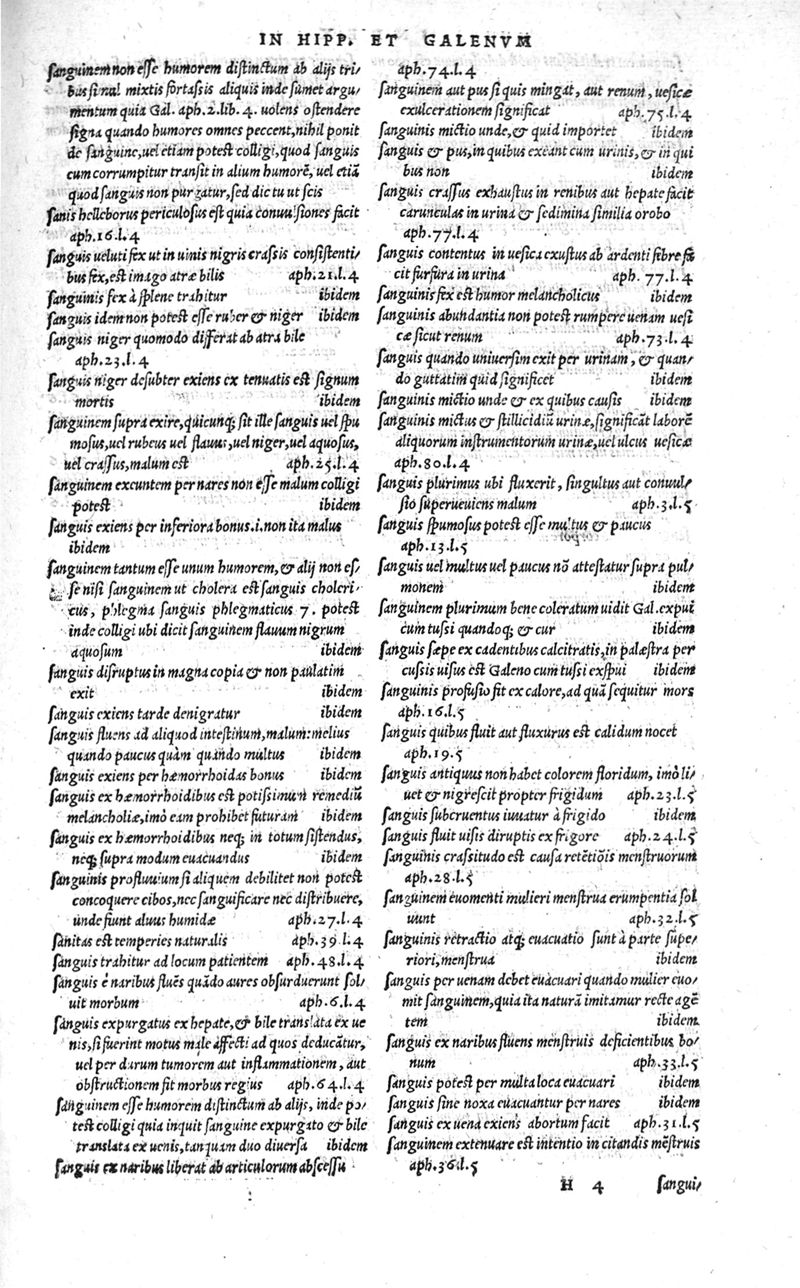 IN HIPP. ET GALENVM
sanguinem non esse humorem distinctum ab alijs tri/
bus simul mixtis fortassis aliquis inde sumet argu/
mentum quia Gal. aph.2.lib.4. uolens ostendere
signa quando humores omnes peccent, nihil ponit
de sanguine, uel etiam potest colligi, quod sanguis
cum corrumpitur transit in alium humorẽ, uel etiã
quod sanguis non purgatur, sed dic tu ut scis
sanis helleborus periculosus est quia conuulsiones facit
aph.16.l.4
sanguis ueluti fex ut in uinis nigris crassis consistenti/
bus fex, est imago atræ bilis aph.21.l.4
sanguinis fex à splene trahitur ibidem
sanguis idem non potest esse ruber & niger ibidem
sanguis niger quomodo differat ab atra bile
aph.23.l.4
sanguis niger desubter exiens ex tenuatis est signum
mortis ibidem
sanguinem supra exire, quicunq; sit ille sanguis uel spu
mosus, uel rubeus uel flauus, uel niger, uel aquosus,
uel crassus, malum est aph.25.l.4
sanguinem exeuntem per nares non esse malum colligi
potest ibidem
sanguis exiens per inferiora bonus.i.non ita malus
ibidem
sanguinem tantum esse unum humorem, & alij non es/
se nisi sanguinem ut cholera est sanguis choleri/
cus, phlegma sanguis phlegmaticus 7. potest
inde colligi ubi dicit sanguinem flauum nigrum
aquosum ibidem
sanguis disruptus in magna copia & non paulatim
exit ibidem
sanguis exiens tarde denigratur ibidem
sanguis fluens ad aliquod intestinum, malum: melius
quando paucus quàm quando multus ibidem
sanguis exiens per hæmorrhoidas bonus ibidem
sanguis ex hæmorrhoidibus est potissimum remediũ
melancholiæ, imò eam prohibet futuram ibidem
sanguis ex hæmorrhoidibus neq; in totum sistendus,
neq; supra modum euacuandus ibidem
sanguinis profluuium si aliquem debilitet non potest
concoquere cibos, nec sanguificare nec distribuere,
unde fiunt aluus humidæ aph.27.l.4
sanitas est temperies naturalis aph.39.l.4
sanguis trahitur ad locum patientem aph.48.l.4
sanguis è naribus fluẽs quãdo aures obsurduerunt sol/
uit morbum aph.6.l.4
sanguis expurgatus ex hepate, & bile translata ex ue
nis, si fuerint motus male affecti ad quos deducãtur,
uel per durum tumorem aut inflammationem, aut
obstructionem fit morbus regius aph.64.l.4
sanguinem esse humorem distinctum ab alijs, inde po/
test colligi quia inquit sanguine expurgato & bile
translata ex uenis, tanquam duo diuersa ibidem
sanguis ex naribus liberat ab articulorum abscessu
aph.74.l.4
sanguinem aut pus si quis mingat, aut renum, uesicæ
exulcerationem significat aph.75.l.4
sanguinis mictio unde, & quid importet ibidem
sanguis & pus, in quibus exeant cum urinis, & in qui
bus non ibidem
sanguis crassus exhaustus in renibus aut hepate facit
carunculas in urina & sedimina similia orobo
aph.77.l.4
sanguis contentus in uesica exustus ab ardenti febre fa
cit furfura in urina aph. 77.l.4
sanguinis fex est humor melancholicus ibidem
sanguinis abundantia non potest rumpere uenam uesi
cæ sicut renum aph.73.l.4
sanguis quando uniuersim exit per urinam, & quan/
do guttatim quid significet ibidem
sanguinis mictio unde & ex quibus causis ibidem
sanguinis mictus & stillicidiũ urinæ, significãt laborẽ
aliquorum instrumentorum urinæ, uel ulcus uesicæ
aph.80.l.4
sanguis plurimus ubi fluxerit, singultus aut conuul/
sio superueniens malum aph.3.l.5
sanguis spumosus potest esse multus & paucus
aph.13.l.5
sanguis uel multus uel paucus nõ attestatur supra pul/
monem ibidem
sanguinem plurimum bene coloratum uidit Gal. expui
cum tussi quandoq; & cur ibidem
sanguis sæpe ex cadentibus calcitratis, in palæstra per
cussis uisus est Galeno cum tussi exspui ibidem
sanguinis profusio fit ex calore, ad quã sequitur mors
aph.16.l.5
sanguis quibus fluit aut fluxurus est calidum nocet
aph.19.5
sanguis antiquus non habet colorem floridum, imò li/
uet & nigrescit propter frigidum aph.23.l.5
sanguis subcruentus iuuatur à frigido ibidem
sanguis fluit uisis diruptis ex frigore aph.24.l.5
sanguinis crassitudo est causa retẽtiõis menstruorum
aph.28.l.5
sanguinem euomenti mulieri menstrua erumpentia sol
uunt aph.32.l.5
sanguinis retractio atq; euacuatio sunt à parte supe/
riori, menstrua ibidem
sanguis per uenam debet euacuari quando mulier euo/
mit sanguinem, quia ita naturã imitamur recte agẽ
tem ibidem
sanguis ex naribus fluens menstruis deficientibus bo/
num aph.33.l.5
sanguis potest per multa loca euacuari ibidem
sanguis sine noxa euacuantur per nares ibidem
sanguis ex uena exiens abortum facit aph.31.l.5
sanguinem extenuare est intentio in citandis mẽstruis
aph.36.l.5
H 4 sangui/